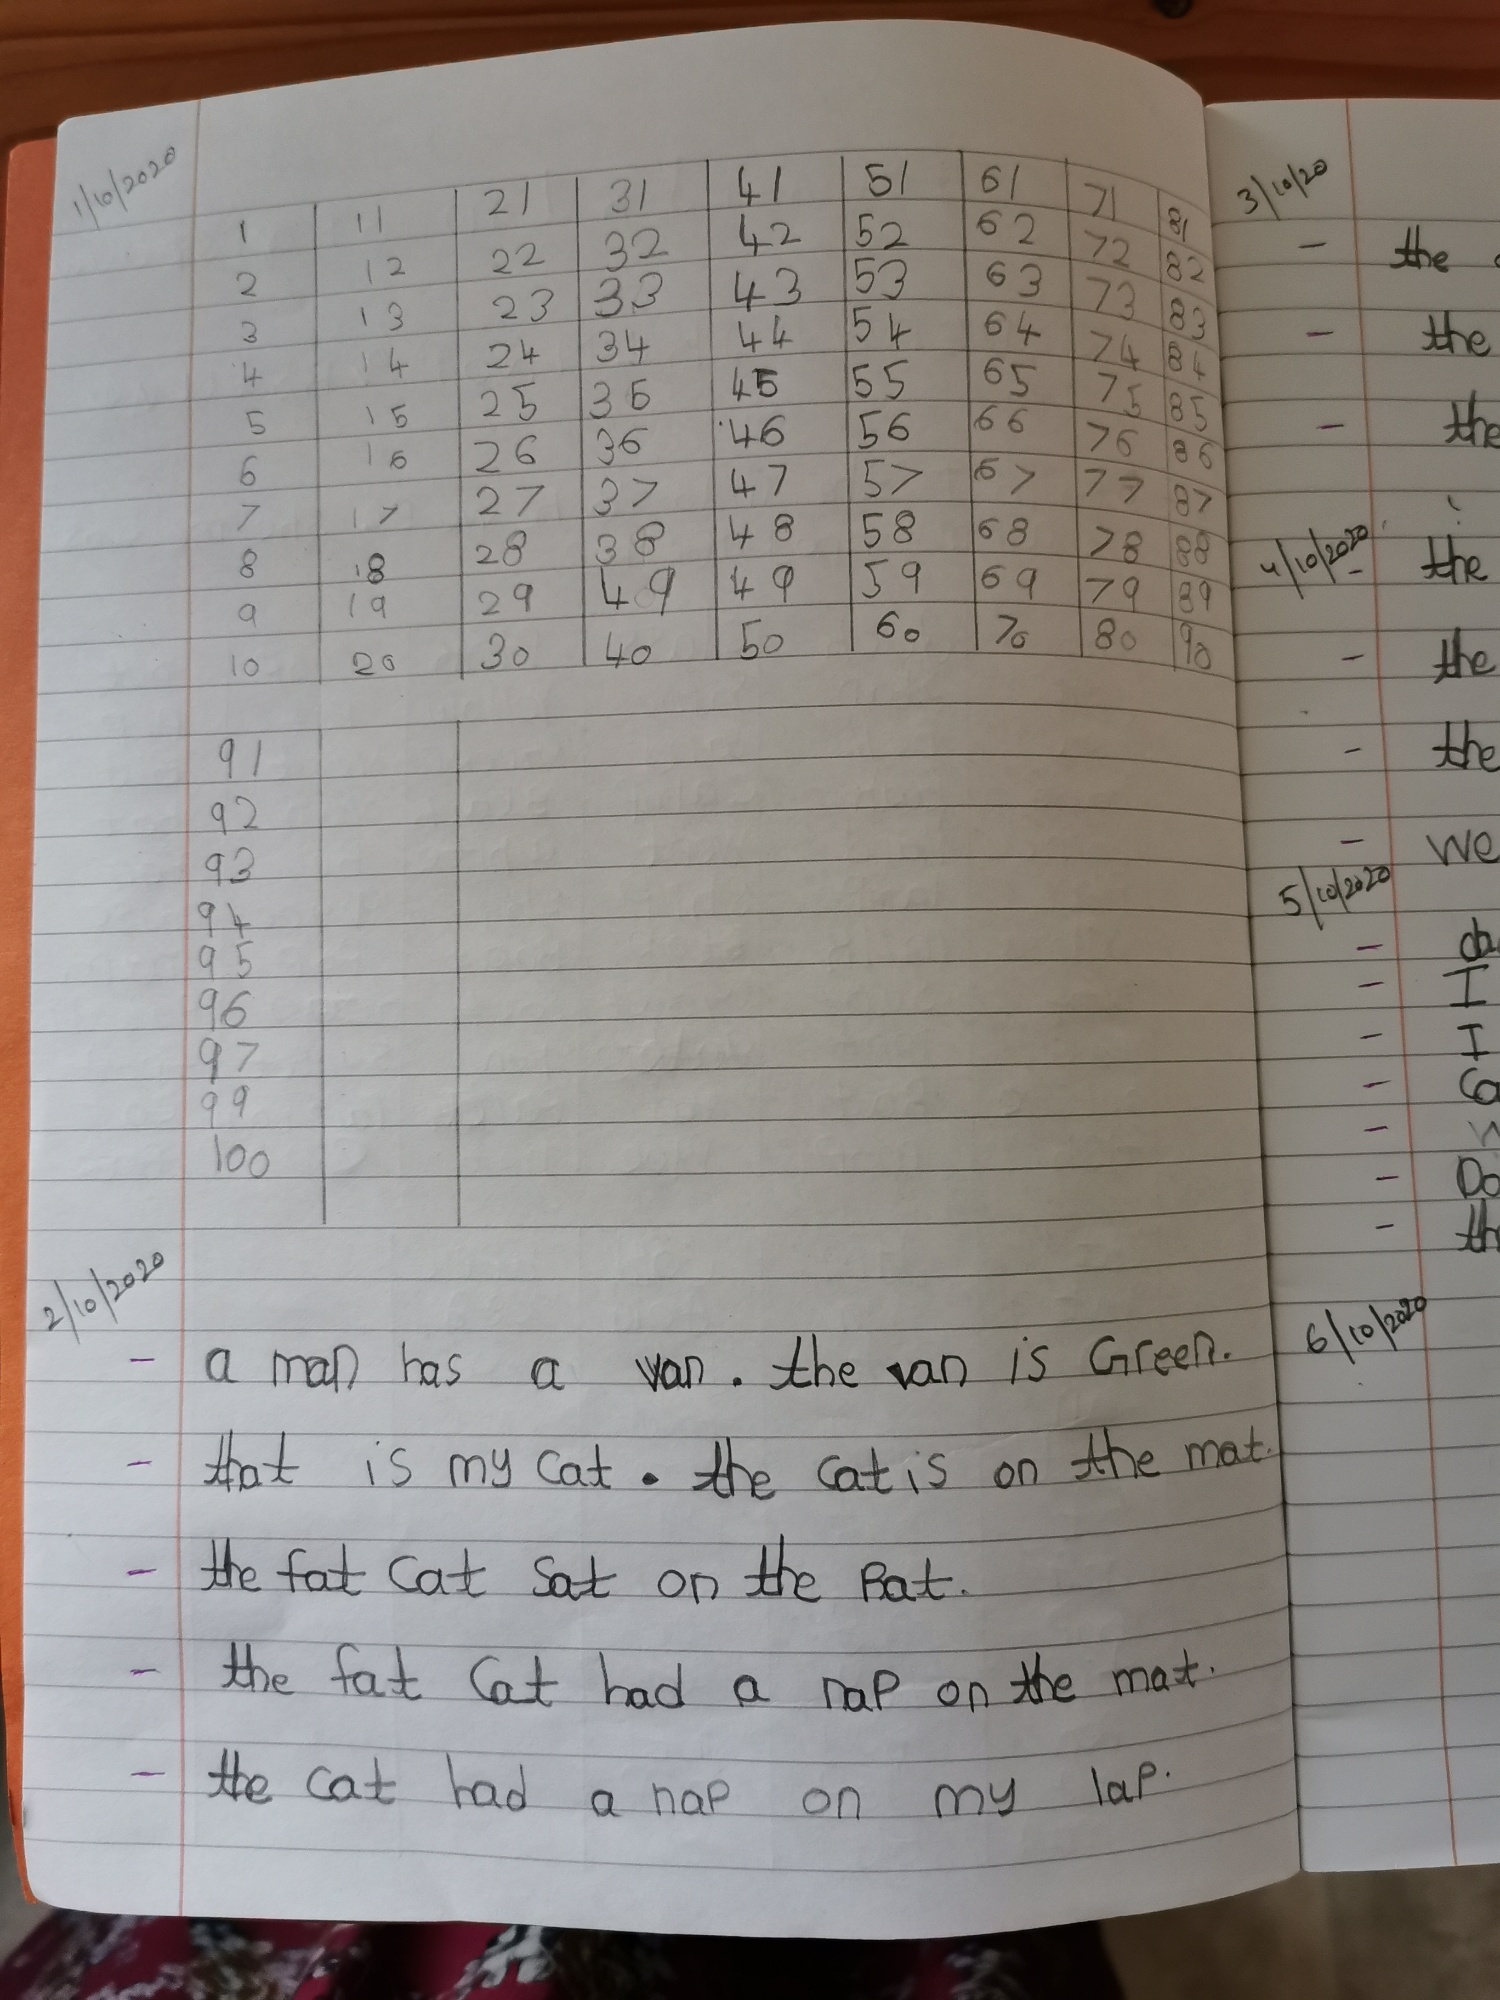 1/10/2020
1 11 21 31 41 51 61 71 81
2 12 22 32 42 52 62 72 82
3 13 23 33 43 53 63 73 83
4 14 24 34 44 54 64 74 84
5 15 25 35 45 55 65 75 85
6 16 26 36 46 56 66 76 86
7 17 27 37 47 57 67 77 87
8 18 28 38 48 58 68 78 88
9 19 29 49 49 59 69 79 89
10 20 30 40 50 60 70 80 90
91
92
93
94
95
96
97
99
100
2/10/2020
- a man has a van. the van is Green.
- that is my cat. the cat is on the mat.
- the fat cat Sat on the Rat.
- the fat Cat had a nap on the mat.
- the cat had a nap on my lap.
3/10/20
- the
- the
- the
4/10/2020
- the
- the
- the
- We
5/10/2020
-
- I
- I
-
-
-
-
6/10/2020